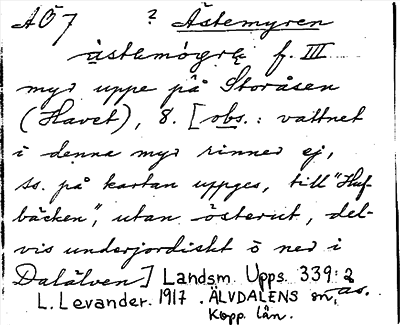 AÖ 7 ? Åstemyren
åstemögrę f. III
myr uppe på Storåsen
(Havet), 8. [obs.: vattnet
i denna myr rinner ej,
ss. på kartan uppges, till "Huf-
bäcken", utan österut, del-
vis underjordiskt ö ned i
Dalälven] Landsm. Upps. 339:2
L. Levander. 1917. ÄLVDALENS sn,
Kopp. län.